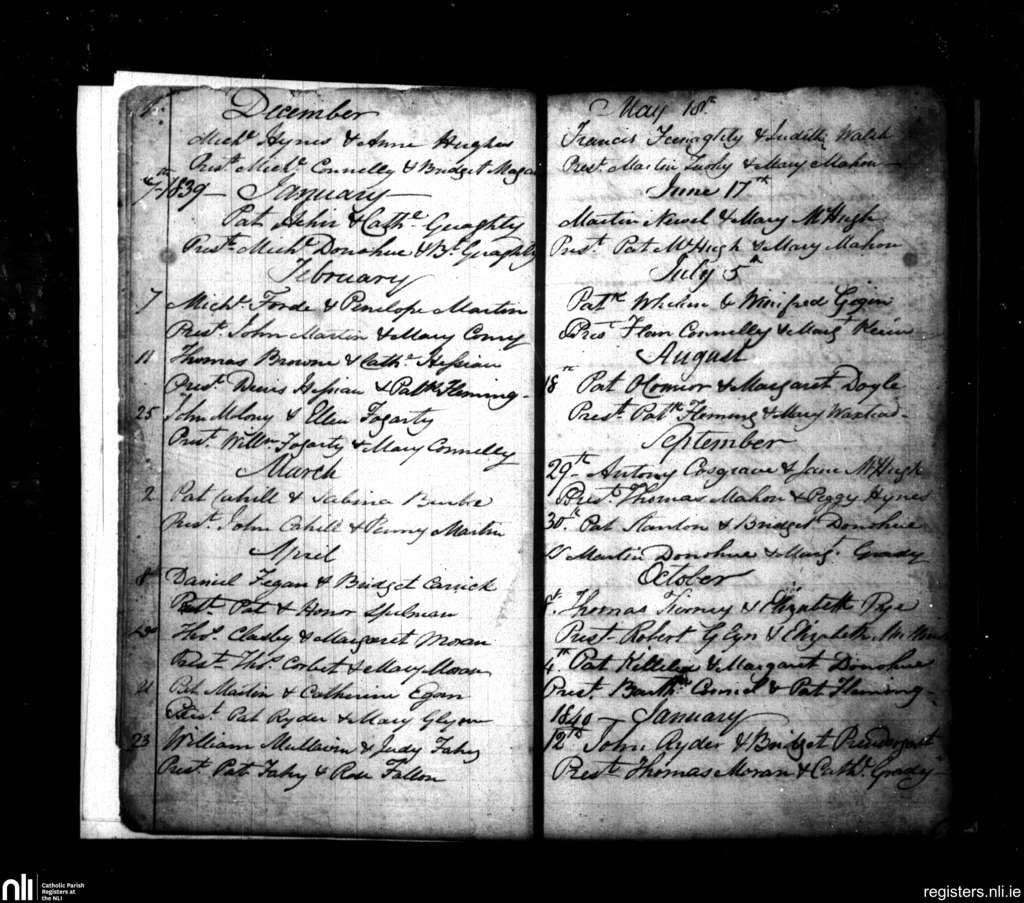 December
Mich.l Hynes & Anne Hughes
Prest. Mich.l Connelly & Bridget Magan
4th 1839 - January
Pat Hehir & Cath.e Geraghty
Prest. Mich.l Donohue & B.t Geraghty
February
7 Mich.l Forde & Penelope Martin
Prest. John Martin & Mary Conry
11 Thomas Browne & Cath.e Hessian
Prest. Denis Hessian & Pat.k Fleming -
25 John Molony & Ellen Fogarty
Prest. Will.m Fogarty & Mary Connelly
March
2 Pat Cahill & Sabina Burke
Prest. John Cahill & Penny Martin
April
8th Daniel Fegan & Bridget Carrick
Prest. Pat & Honor Spelman
Tho.s Clasby & Margaret Moran
Prest. Tho.s Corbet & Mary Moran
21 Pat Martin & Catherine Egan
Prest. Pat Ryder & Mary Glynn
23 William Mullavin & Judy Fahy
Prest. Pat Fahy & Rose Fallon
May 18th
Francis & Judith Walsh
Prest. Martin & Mary Mahon
June 17th
Martin & Mary McHugh
Prest. Pat McHugh & Mary Mahon
July 5th
Pat.k & Winifred
Prest. Flan Connelly & Marg.t
August
18th Pat OConnor & Margaret Doyle
Prest. Pat.k Fleming & Mary
September
29th - Antony Cosgrave & Jane McHugh
Prest. Thomas Mahon & Peggy Hynes
30th Pat Stanton & Bridget Donohue
Martin Donohue & Marg.t Grady
October
Thomas Tierney & Elizabeth Pye
Prest. Robert Glyn & Elizabeth
4th Pat Killilea & Margaret Donohue
Prest. Barth.w & Pat Fleming -
1840 - January
12th John Ryder & Bridget Prendergast
Prest. Thomas Moran & Cath.e Grady
nli Catholic Parish
Registers at
the NLI
registers.nli.ie